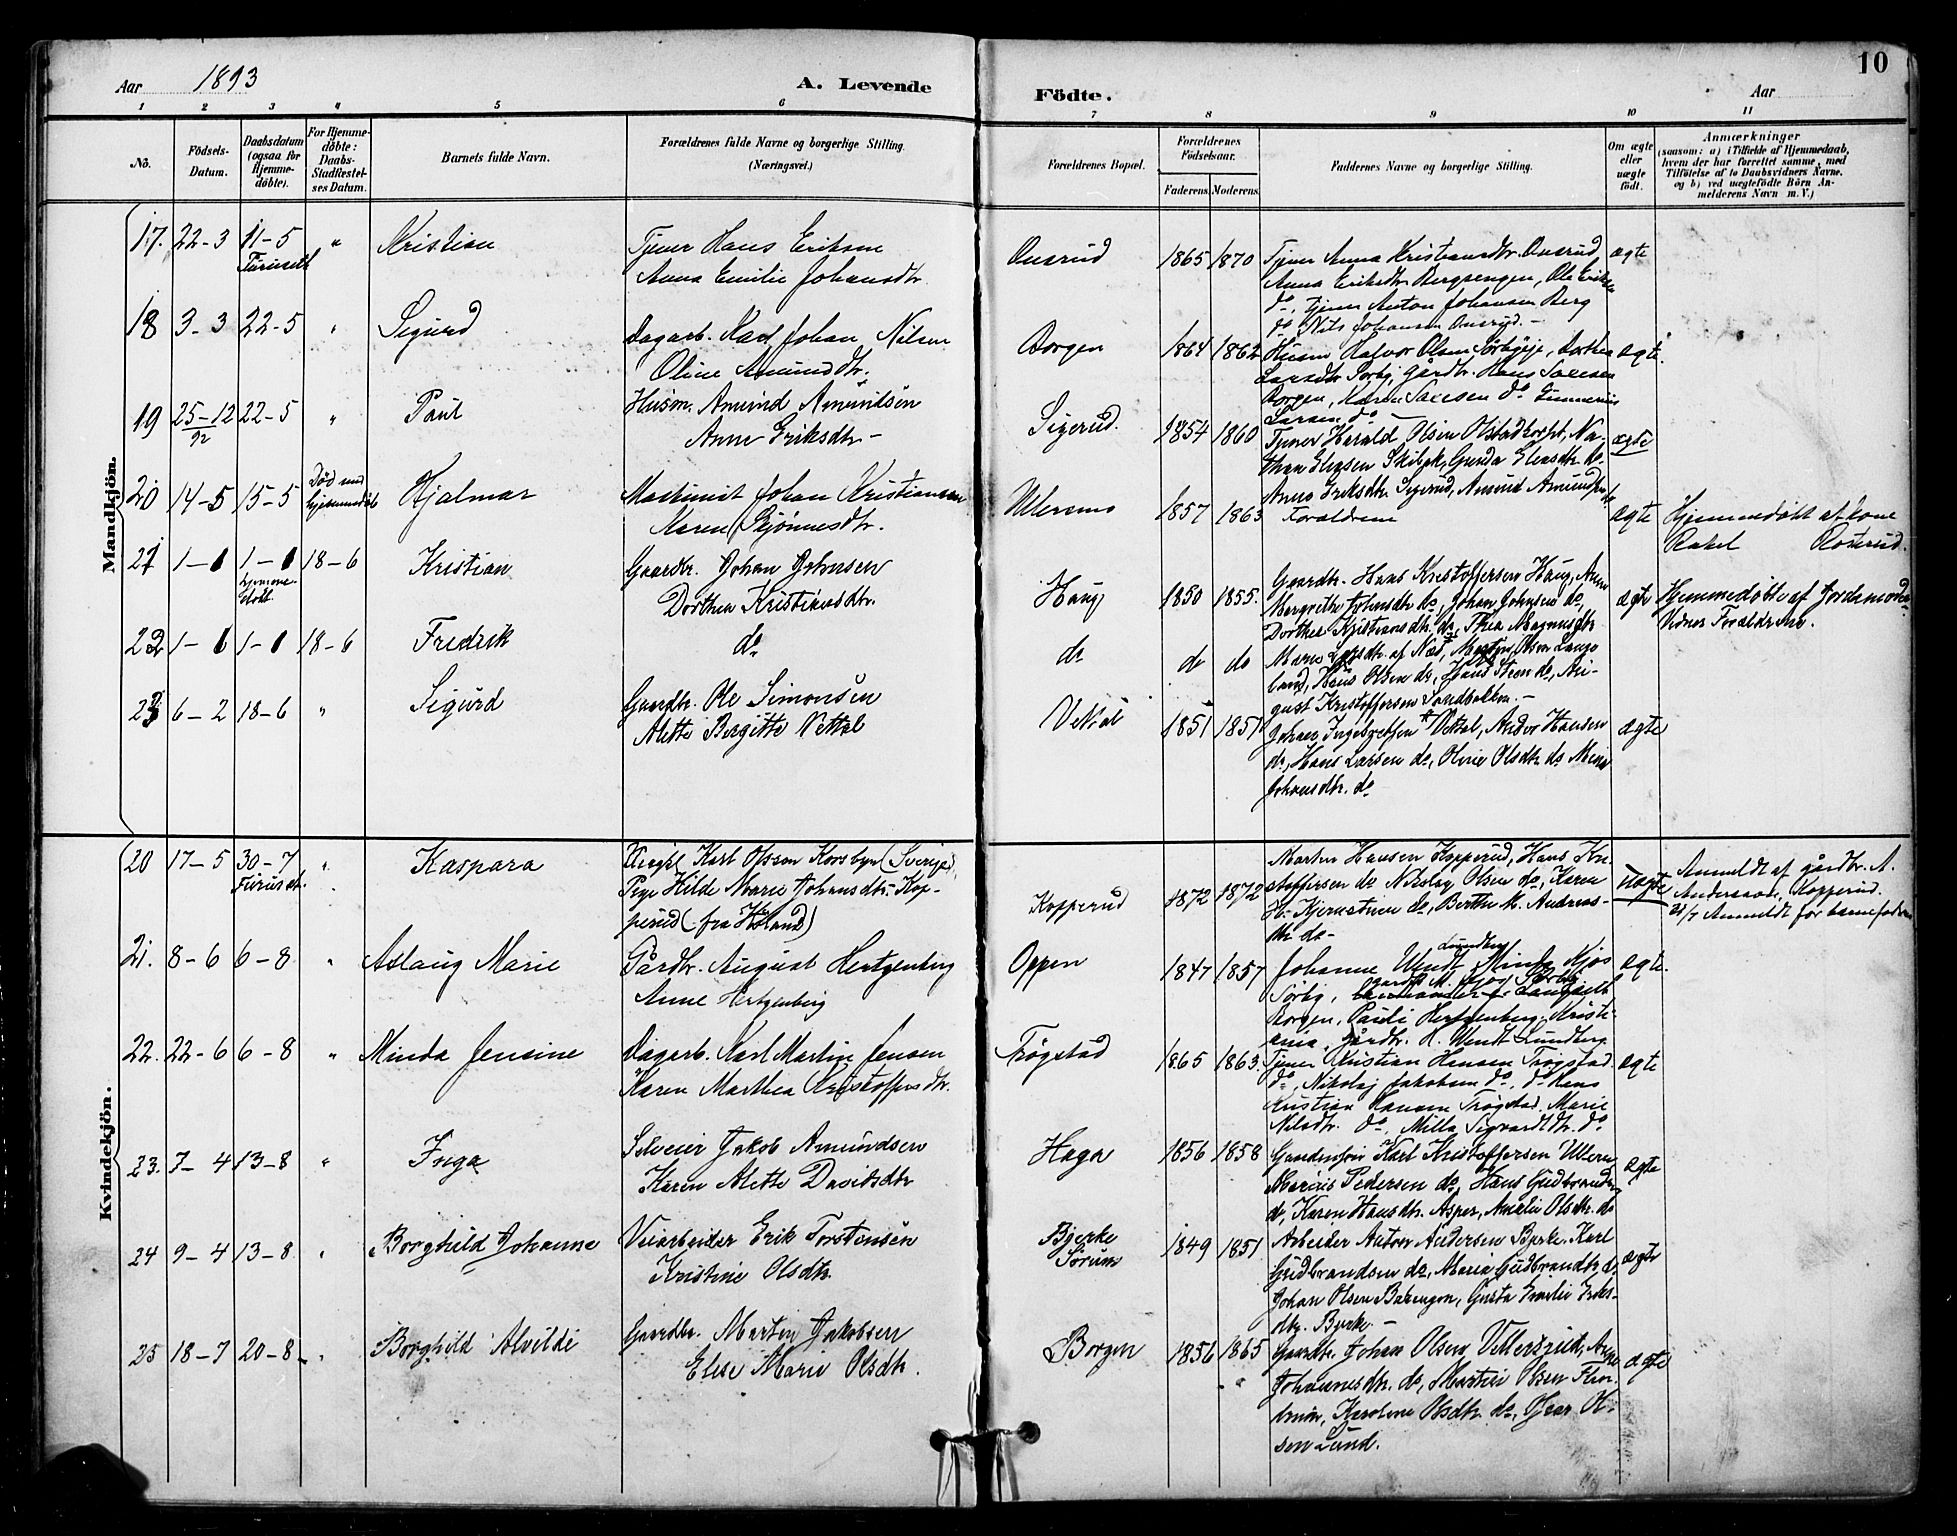 Aar 1893
A. Levende
Födte.
Aar
10
1 2 3 4 5 6 7 8 9 10 11
No.
Födsels-
Datum.
Daabsdatum
(ogsaa for
Hjemme-
döbte).
For Hjemme-
döbte:
Daabs-
Stadfæstel-
ses Datum.
Barnets fulde Navn.
Forældrenes fulde Navne og borgerlige Stilling.
(Næringsvei.)
Forældrenes Bopæl.
Forældrenes
Födselsaar.
Faderens. Moderens.
Faddernes Navne og borgerlige Stilling.
Om ægte
eller
uægte
födt.
Anmærkninger
(saasom: a) i Tilfælde af Hjemmedaab,
hvem der har forrettet samme, med
Tilföielse af to Daabsvidners Navne.
og b) ved uægtefödte Börn An-
melderens Navn m. V.)
Mandkjön.
17. 22-3 11-5 " Kristian
Furuset
Tjener Hans Eriksen
Anna Emilie Johansdtr.
Onsrud 1865 1870
Tjener Anna Kristiansdtr. Onsrud
Anna Eriksdtr. Bergsengen, Ole Eriksen
do, Tjener Anton Johansen Berg
do Nils Johansen Onsrud. -
ægte
18 3-3 22-5 " Sigurd
Dagarb. Karl Johan Nilsen
Oline Amundsdtr.
Borgen 1864 1862
Husm. Halvor Olsen Sörbyeje, Dorthea
Larsdtr. Sörby, Gårdbr. Hans Larsen
Borgen, Karen Larsen do Gunnerius
Larsen do
ægte
19 25-12 22-5 " Paul
92
Husm. Amund Amundsen
Anne Eriksdtr. -
Sigerud. 1854 1860
Tjener Harald Olsen Olstadkorpt, Na-
than Eliasen Skibæk, Gunda Eliasdtr. do
Anne Eriksdtr. Sigerud, Amund Amundsen do
ægte
20 14-5 15-5 Död
Hjalmar
Johan Kristiansen
Karen
1857 1863
Forældrene
ægte
Hjemmedöbt af kone
Rakel
21 1-1 1-1 18-6 Kristian
Hjemme-
döbt.
Gaardbr. Johan Johnsen
Dorthea Kristiansdtr.
Haug 1850 1855.
Gaardbr. Hans Kristoffersen Haug, Anne
Margrethe Johnsdtr. do, Johan Johnsen do,
Dorthea Kristiansdtr. do, Thea Magnusdtr.
ægte
Hjemmedöbt af Jordemoder
Vidner Forældrene.
22 1-1 1-1 18-6 Fredrik
do
do do do
Maren Larsdtr. af Næs, Martin Olsen Lange-
land, Hans Olsen do, Hans Steen do, Au-
gust Kristoffersen Sandbakken. -
23 6-2 18-6 " Sigurd
Gaardbr. Ole Simonsen
Alette Bergitte Vettal
Vettal 1851 1851
Johan Ingebretsen Vettal, Andor Hansen
do, Hans Larsen do, Oline Olsdtr. do Mina
Johansdtr. do
ægte
Kvindekjön.
20 17-5 30-7 " Kaspara
Furuset.
Ungk. Karl Olsson Korsbyn (Sverige),
Pige Hilda Marie Johansdtr. Kop-
perud (fra Höland)
Kopperud 1872 1872
Martin Hansen Kopperud, Hans Kri-
stoffersen do Nikolay Olsen do, Karen
H. Kjernstuen do, Berthe M. Andreas-
dtr. do -
uægte
Anmeldt af gårdbr. A.
Anderssen, Kopperud.
Anmeldt for barnefader
21. 8-6 6-8 " Aslaug Marie
Gårdbr. August Hertzenberg
Anne Hertzenberg
Oppen 1847 1857
Johanne Wendt Lundby, Minda Kjos
Sörby,
Borgen, Pauli Hertzenberg, Kristi-
ania, gårdbr. H. Wendt Lundberg.
ægte.
22. 22-6 6-8 " Minda Jensine
Dagarb. Karl Martin Jensen
Karen Marthea Kristoffersdtr.
Trögstad 1865 1863.
Tjener Kristian Hansen Trögstad
do, Nikolaj Jakobsen do, do Hans
Kristian Hansen Trögstad, Marie
Nilsdtr. do, Milla Sigvardtdtr. do
ægte
23. 7-4 13-8 " Inga
Selveier Jakob Amundsen
Karen Alette Davidsdtr
Haga 1856 1858
Gaardmand Karl Kristoffersen Ullern
Marius Pedersen do, Hans Gudbrandsen
do, Karen Hansdtr. Asper, Amalie Olsdtr. do
ægte
24 9-4 13-8 " Borghild Johanne
Veiarbeider Erik Torstensen
Kristine Olsdtr.
Bjerke
Sörum
1849 1851
Arbeider Anton Andersen Bjerke, Karl
Gudbrandsen do, Maria Gudbrandsdtr. do
Johan Olsen Barengen, Gusta Emilie Eriks-
dtr. Bjerke. -
ægte
25 18-7 20-8 " Borghild Alvilde
Gaardbr. Martin Jakobsen
Elise Marie Olsdtr.
Borgen 1856 1865
Gaardbr. Johan Olsen Vetterserud, Anne
Johannesdtr. do, Martin Olsen
Karoline Olsdtr. do, Ol-
sen Lund.
ægte